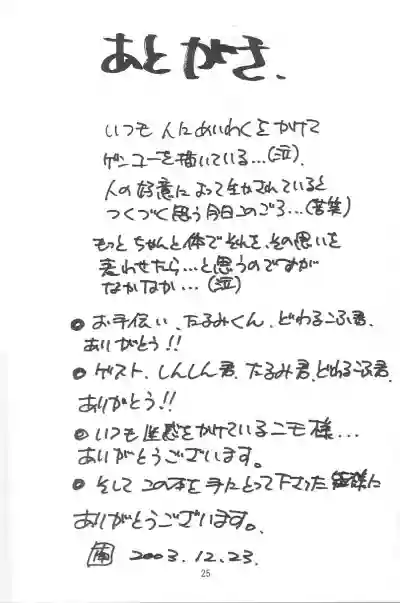 あとがき.
いつも 人にめいわくをかけて
ゲンコーを描いている…(泣).
人の好意によって生かされていると
つくづく思う今日このごろ…(苦笑)
もっと ちゃんと体でそれを、その思いを
表わせたら…と思うのですが
なかなか…(泣)
●お手伝い、たるみくん、どわるこふ君.
ありがとう!!
●ゲスト、しんしん君、たるみ君、どわるこふ君.
ありがとう!!
●いつも迷惑をかけているニモ様…
ありがとうございます。
●そして この本を手にとって下さった皆様に
ありがとうございます。
2003.12.23.
25